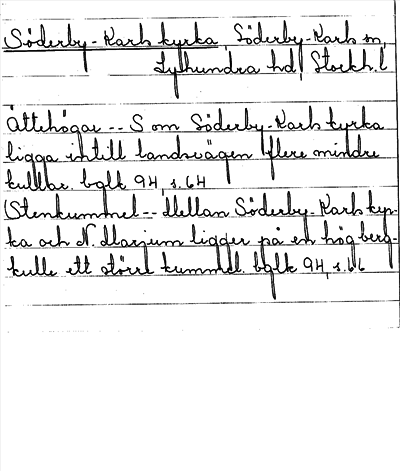 Söderby-Karls kyrka, Söderby-Karls sn,
Lyhundra hd, Stockh. l
Ättehögar -- S om Söderby-Karls kyrka
ligga intill landsvägen flere mindre
kullar. bglk 94, s. 64
Stenkummel -- Mellan Söderby-Karls kyr-
ka och N. Marjum ligger på en hög berg-
kulle ett större kummel. bglk 94, s. 66